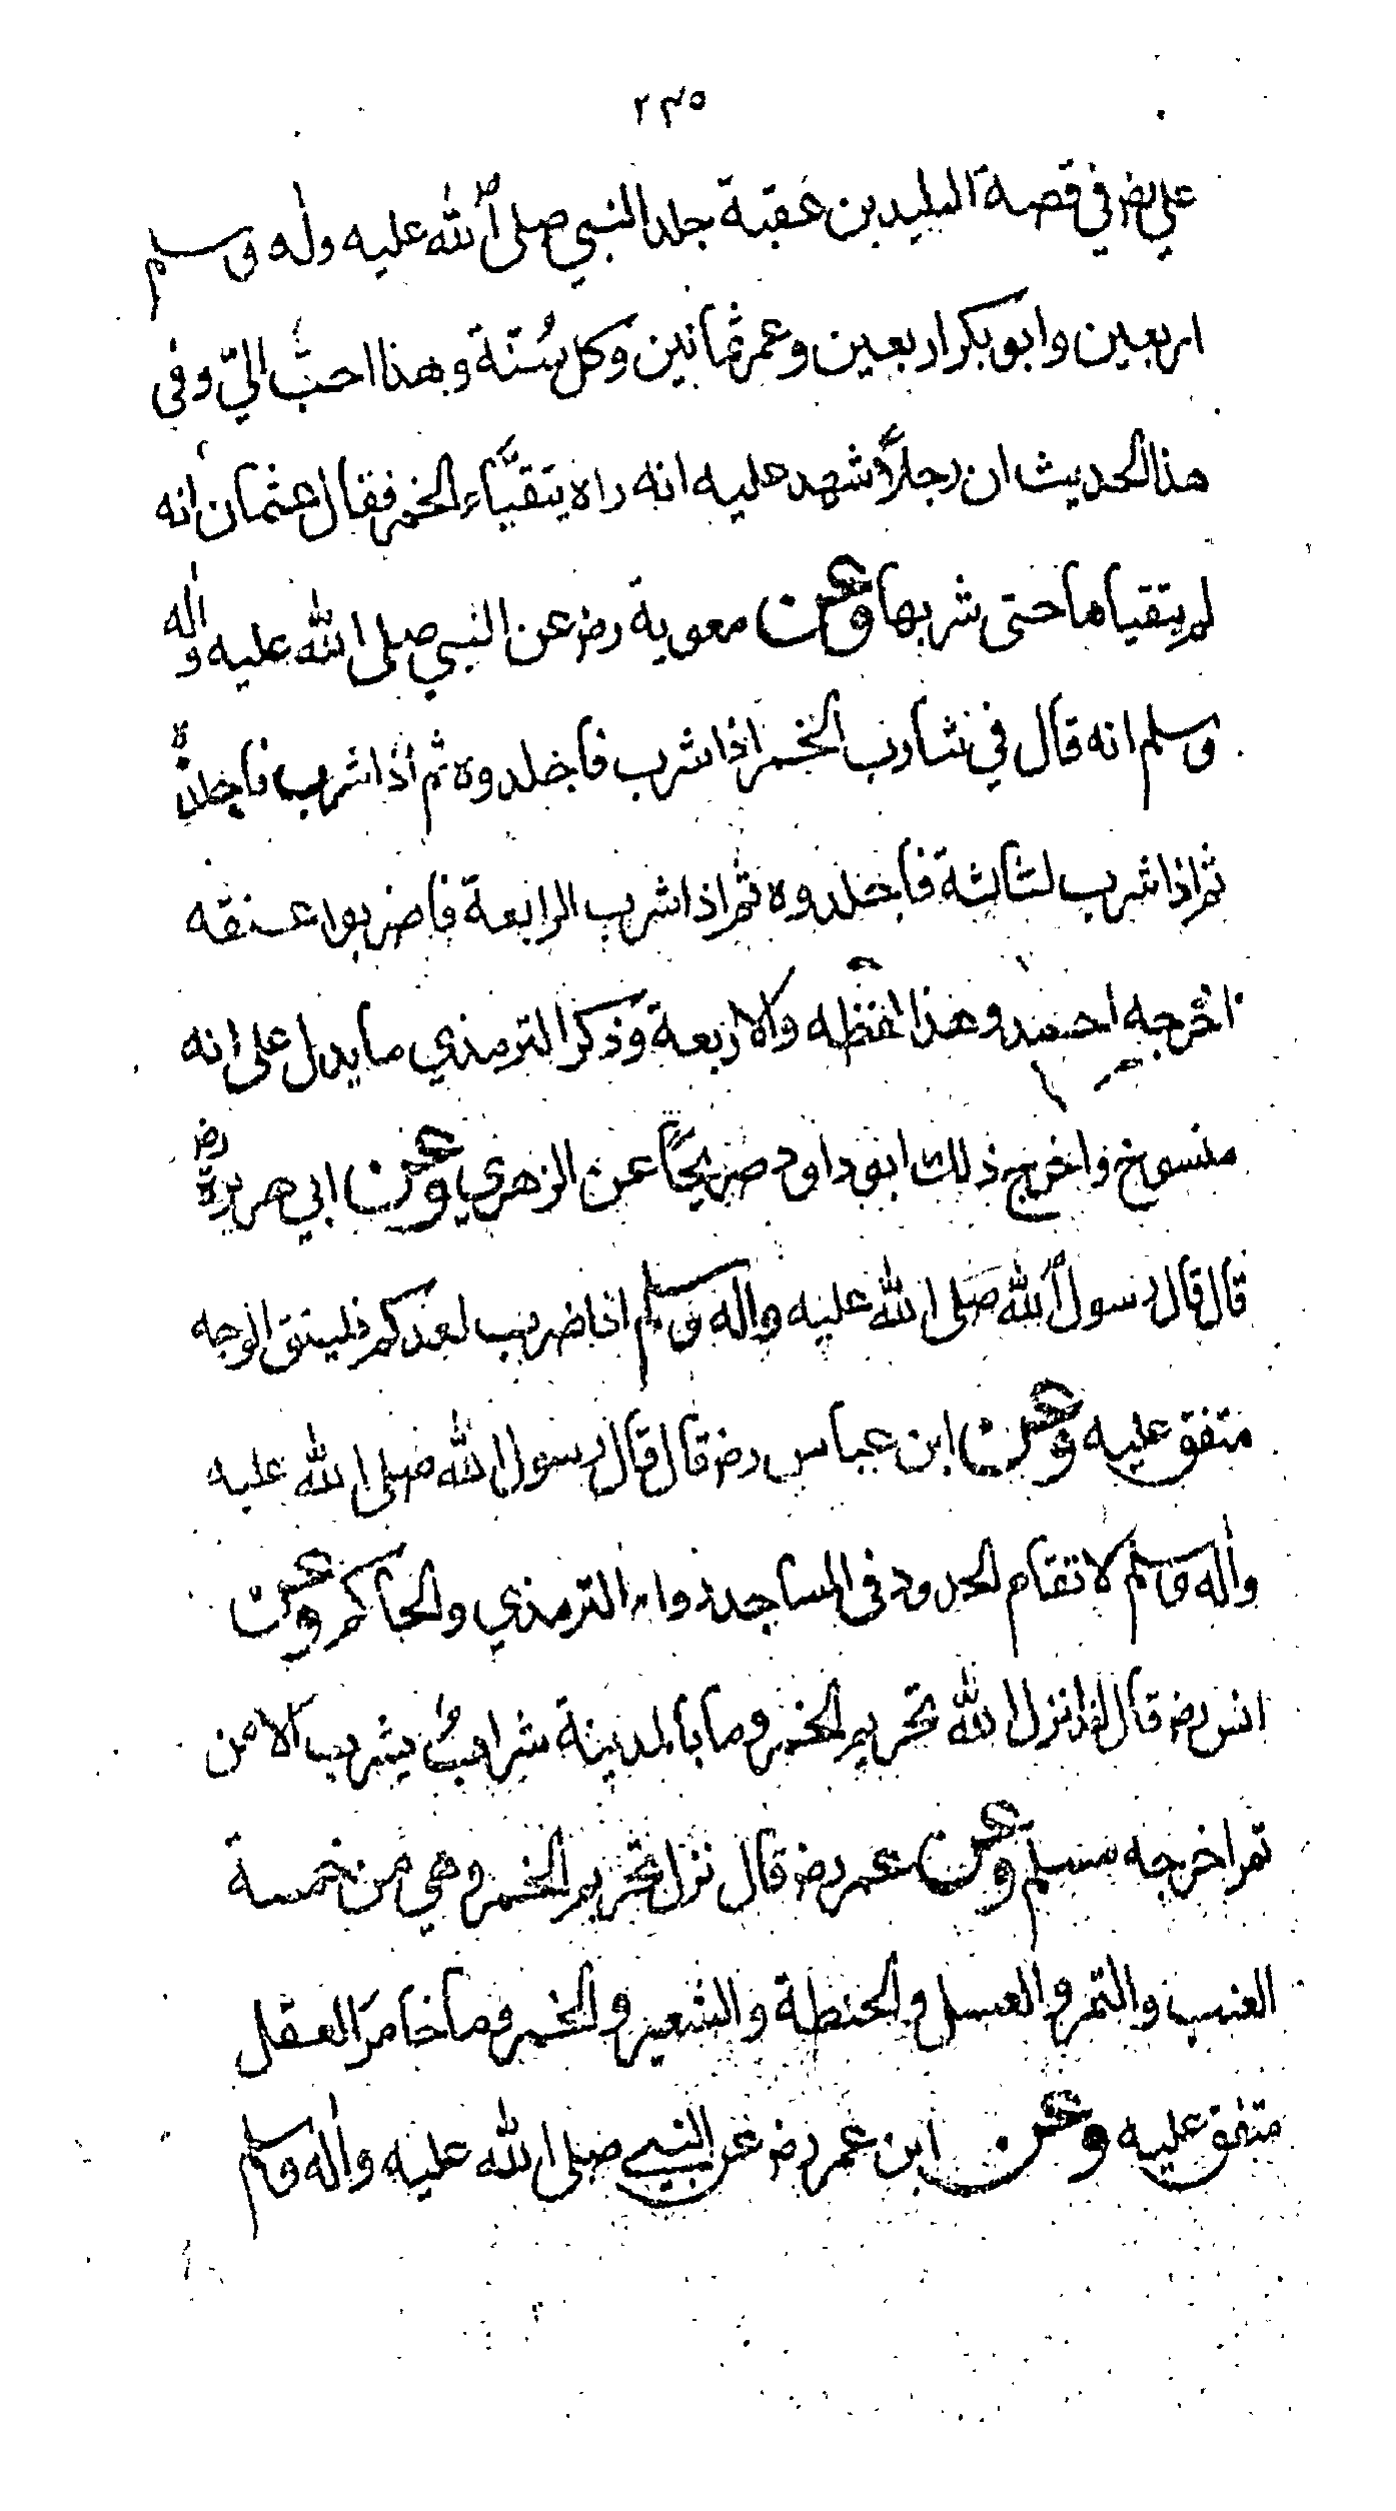 ٢٣٥
علي رض في قصة الوليد بن عقبة جلد النبي صلى الله عليه واله وسلم
اربعين وابو بكر اربعين وعمر ثمانين وكل سُنّة وهذا احبّ اليّ وفى
هذا الحديث ان رجلاً شهد عليه انه راه يتقيّاء الخمر فقال عثمان انه
لم يتقياها حتى شربها وعن معوية رض عن النبي صلى الله عليه واله
وسلم انه قال في شارب الخمر اذا شرب فاجلدوه ثم اذا شرب فاجلدوه
ثم اذا شرب لثالثة فاجلدوه ثم اذا شرب الرابعة فاضربوا عنقه
اخرجه احمد وهذا لفظه والاربعة وذكر الترمذي ما يدل على انه
منسوخ واخرج ذلك ابو داود صريحاً عن الزهري وعن ابي هريرة رض
قال قال رسول الله صَلى الله عليه واله وسلم اذا ضرب احدكم فليتق الوجه
متفق عليه وعن ابن عباس رض قال قال رسول الله صلى الله عليه
واله وسلم لا تقام الحدود فى المساجد رواه الترمذي والحاكم وعن
انس رض قال لقد انزل الله تحريم الخمر وما بالمدينة شرابٌ يشرب الا من
تمر اخرجه مسلم وعن عمر رض قال نزل تحريم الخمر وهي من خمسة
العنب والتمر والعسل والحنطة والشعير والخمر ما خامرَ العقل
متفق عليه وعن ابن عمر رض عن النبي صلى الله عليه واله وسلم